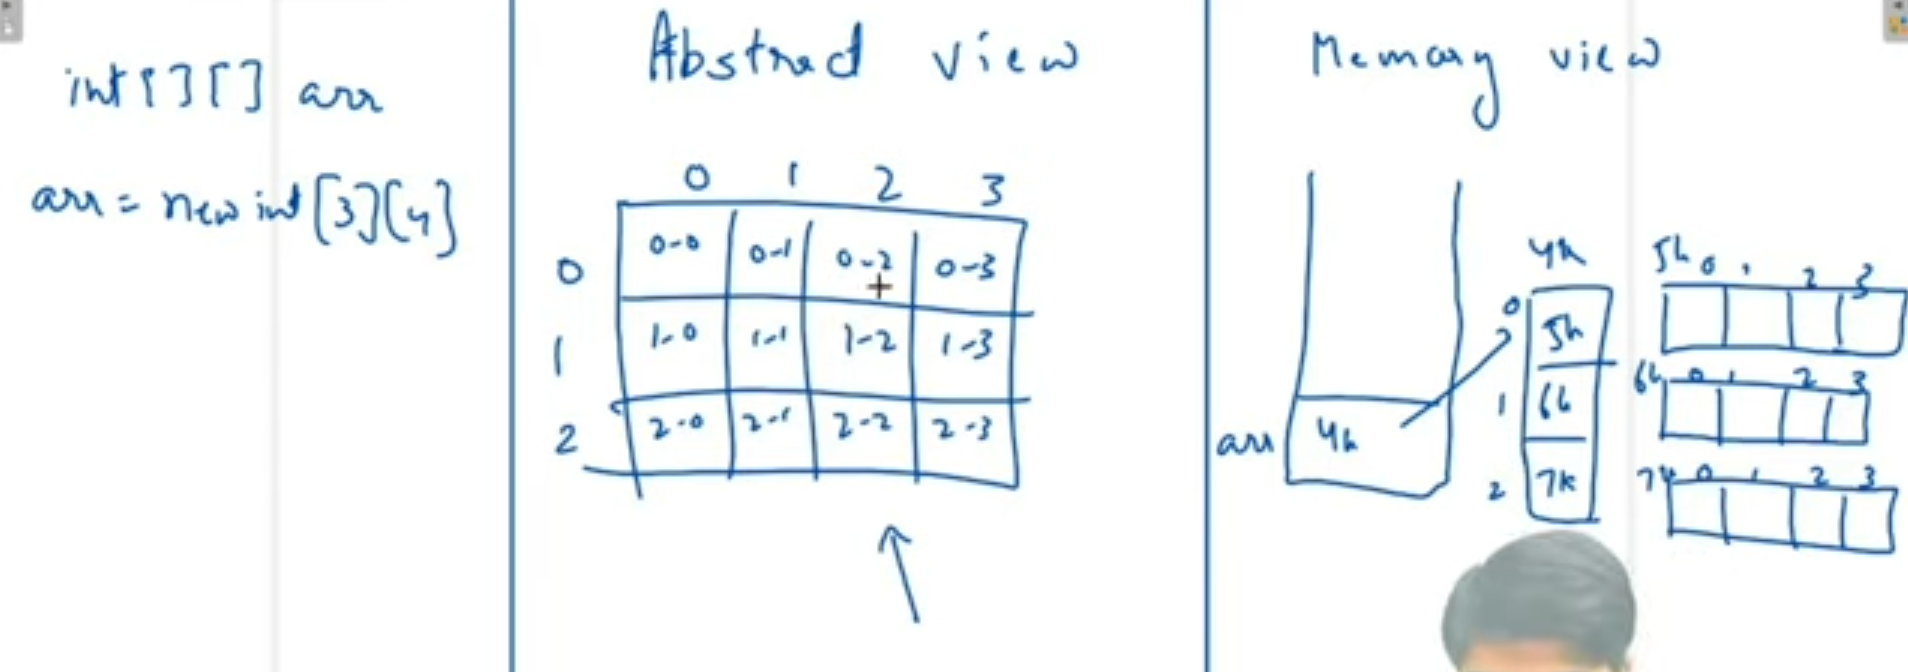 int[][] arr
arr = new int[3][4]
Abstract view
0 1 2 3
0 0-0 0-1 0-2 0-3
1 1-0 1-1 1-2 1-3
2 2-0 2-1 2-2 2-3
Memory view
arr 4k
4k
0 5k
1 6k
2 7k
5k 0 1 2 3
6k 0 1 2 3
7k 0 1 2 3